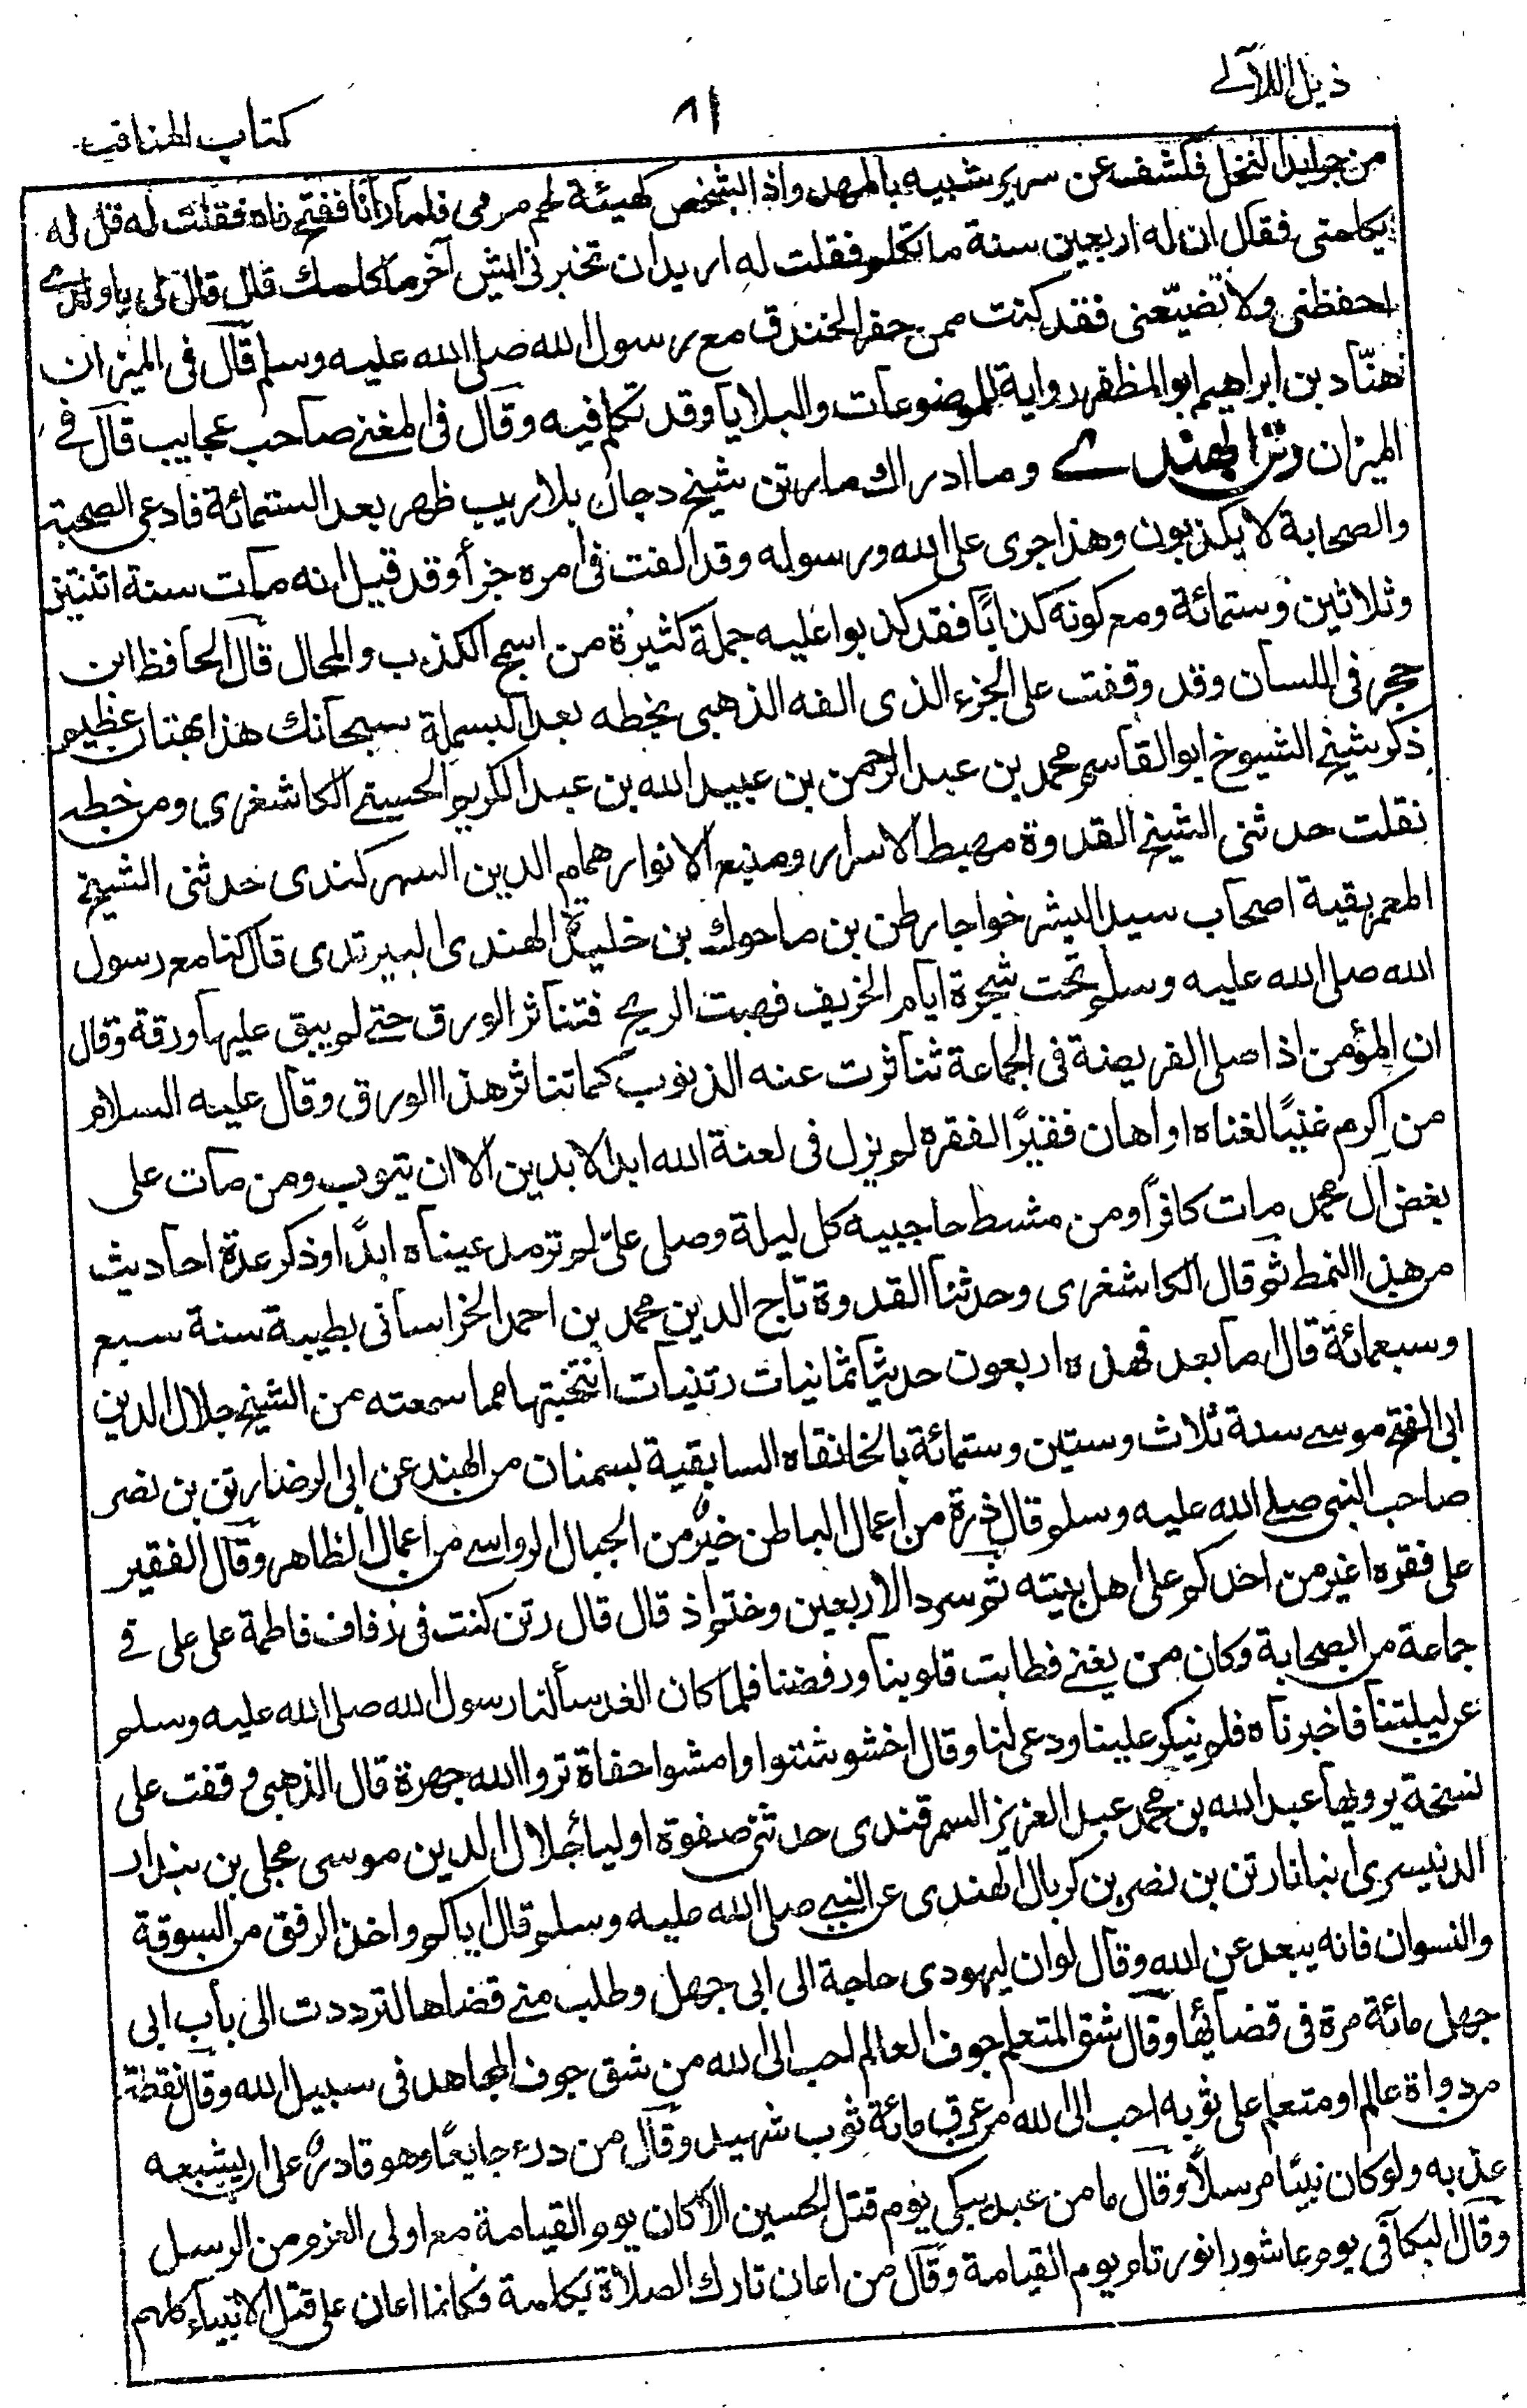 ذيل اللآلے
٨١
كتاب المناقب
من جرايد النخل فكشف عن سرير شبيه بالمهد واذا الشخص كهيئة لحم مرمى فلما رآنا ففتح فاه فقلت له قل له
يكلمنى فقال ان له اربعين سنة ما تكلم فقلت له اريد ان تخبرنى ايش آخر ما كلمك قال قال لى يا ولدے
احفظنى ولا تضيّعنى فقد كنت ممن حفر الخندق مع رسول الله صلى الله عليه وسلم قال فى الميزان
هنّاد بن ابراهيم ابو المظفر رواية للموضوعات والبلايا وقد تكلم فيه وقال فى المغنے صاحب عجايب قال فے
الميزان رتن الهندے وما ادراك ما رتن شيخ دجال بلا ريب ظهر بعد الستمائة فادعى الصحبة
والصحابة لا يكذبون وهذا جرى على الله ورسوله وقد الفت فى امره جزأ وقد قيل انه مات سنة اثنتين
وثلاثين وستمائة ومع كونه كذابًا فقد كذبوا عليه جملة كثيرة من اسمج الكذب والمحال قال الحافظ ابن
حجر فى اللسان وقد وقفت على الجزء الذى الفه الذهبى بخطه بعد البسملة سبحانك هذا بهتان عظيم
ذكر شيخ الشيوخ ابو القاسم محمد بن عبد الرحمن بن عبيد الله بن عبد الكريم الحسينے الكاشغرى ومن خطه
نقلت حدثنى الشيخ القدوة مهبط الاسرار ومنبع الانوار همام الدين السهركندى حدثنى الشيخ
المعمر بقية اصحاب سيد البشر خواجا رطن بن ماحوك بن خليد الهندى البيرتدى قال كنا مع رسول
الله صلى الله عليه وسلم تحت شجرة ايام الخريف فهبت الريح فتناثر الورق حتے لم يبق عليها ورقة وقال
ان المؤمن اذا صلى الفريضة فى الجماعة تناثرت عنه الذنوب كما تناثر هذا الورق وقال عليه السلام
من اكرم غنيًا لغناه او اهان فقيرًا لفقره لم يزل فى لعنة الله ابد الابدين الا ان يتوب ومن مات على
بغض آل محمد مات كافرًا ومن مشط حاجبيه كل ليلة وصلى علىّ لم ترمد عيناه ابدًا وذكر عدة احاديث
من هذا النمط ثم قال الكاشغرى وحدثنا القدوة تاج الدين محمد بن احمد الخراسانى بطيبة سنة سبع
وسبعمائة قال اما بعد فهذه اربعون حديثا ثمانيات رتنيات انتخبتها مما سمعته من الشيخ جلال الدين
ابى الفتح موسے سنة ثلاث وستين وستمائة بالخانقاه السابقية بسمنان من الهند عن ابى الرضا رتن بن نصر
صاحب النبى صلے الله عليه وسلم قال ذرة من اعمال الباطن خيرٌ من الجبال الرواسے من اعمال الظاهر وقال الفقير
على فقره اغير من احدكم على اهل بيته ثم سرد الاربعين وختم اذ قال قال رتن كنت فى زفاف فاطمة على على فے
جماعة من الصحابة وكان من يغنے فطابت قلوبنا ورقصنا فلما كان الغد سألنا رسول الله صلى الله عليه وسلم
عن ليلتنا فاخبرناه فلم ينكر علينا ودعى لنا وقال اخشوشنوا وامشوا حفاة تروا الله جهرة قال الذهبى وقفت على
نسخة يرويها عبد الله بن محمد عبد العزيز السمرقندى حدثنى صفوة اوليأ جلال الدين موسى مجلى بن بندار
الدنيسرى انبانا رتن بن نصر بن كربال الهندى عن النبے صلى الله عليه وسلم قال اياكم واخذ الرفق من السوقة
والنسوان فانه يبعد عن الله وقال لو ان ليهودى حاجة الى ابى جهل وطلب منے قضاها لترددت الى باب ابى
جهل مائة مرة فى قضائها وقال شق المتعلم جوف العالم احب الى الله من شق جوف المجاهد فى سبيل الله وقال نقطة
من دواة عالم او متعلم على ثوبه احب الى الله من عرق مائة ثوب شهيد وقال من درء جايعًا وهو قادرٌ على ان يشبعه
عذبه ولو كان نبيًا مرسلًا وقال ما من عبد يبكى يوم قتل الحسين الا كان يوم القيامة مع اولى العزم من الرسل
وقال البكأ فى يوم عاشورا نور تام يوم القيامة وقال من اعان تارك الصلاة بكلمة فكانما اعان على قتل الانبيآء كلهم